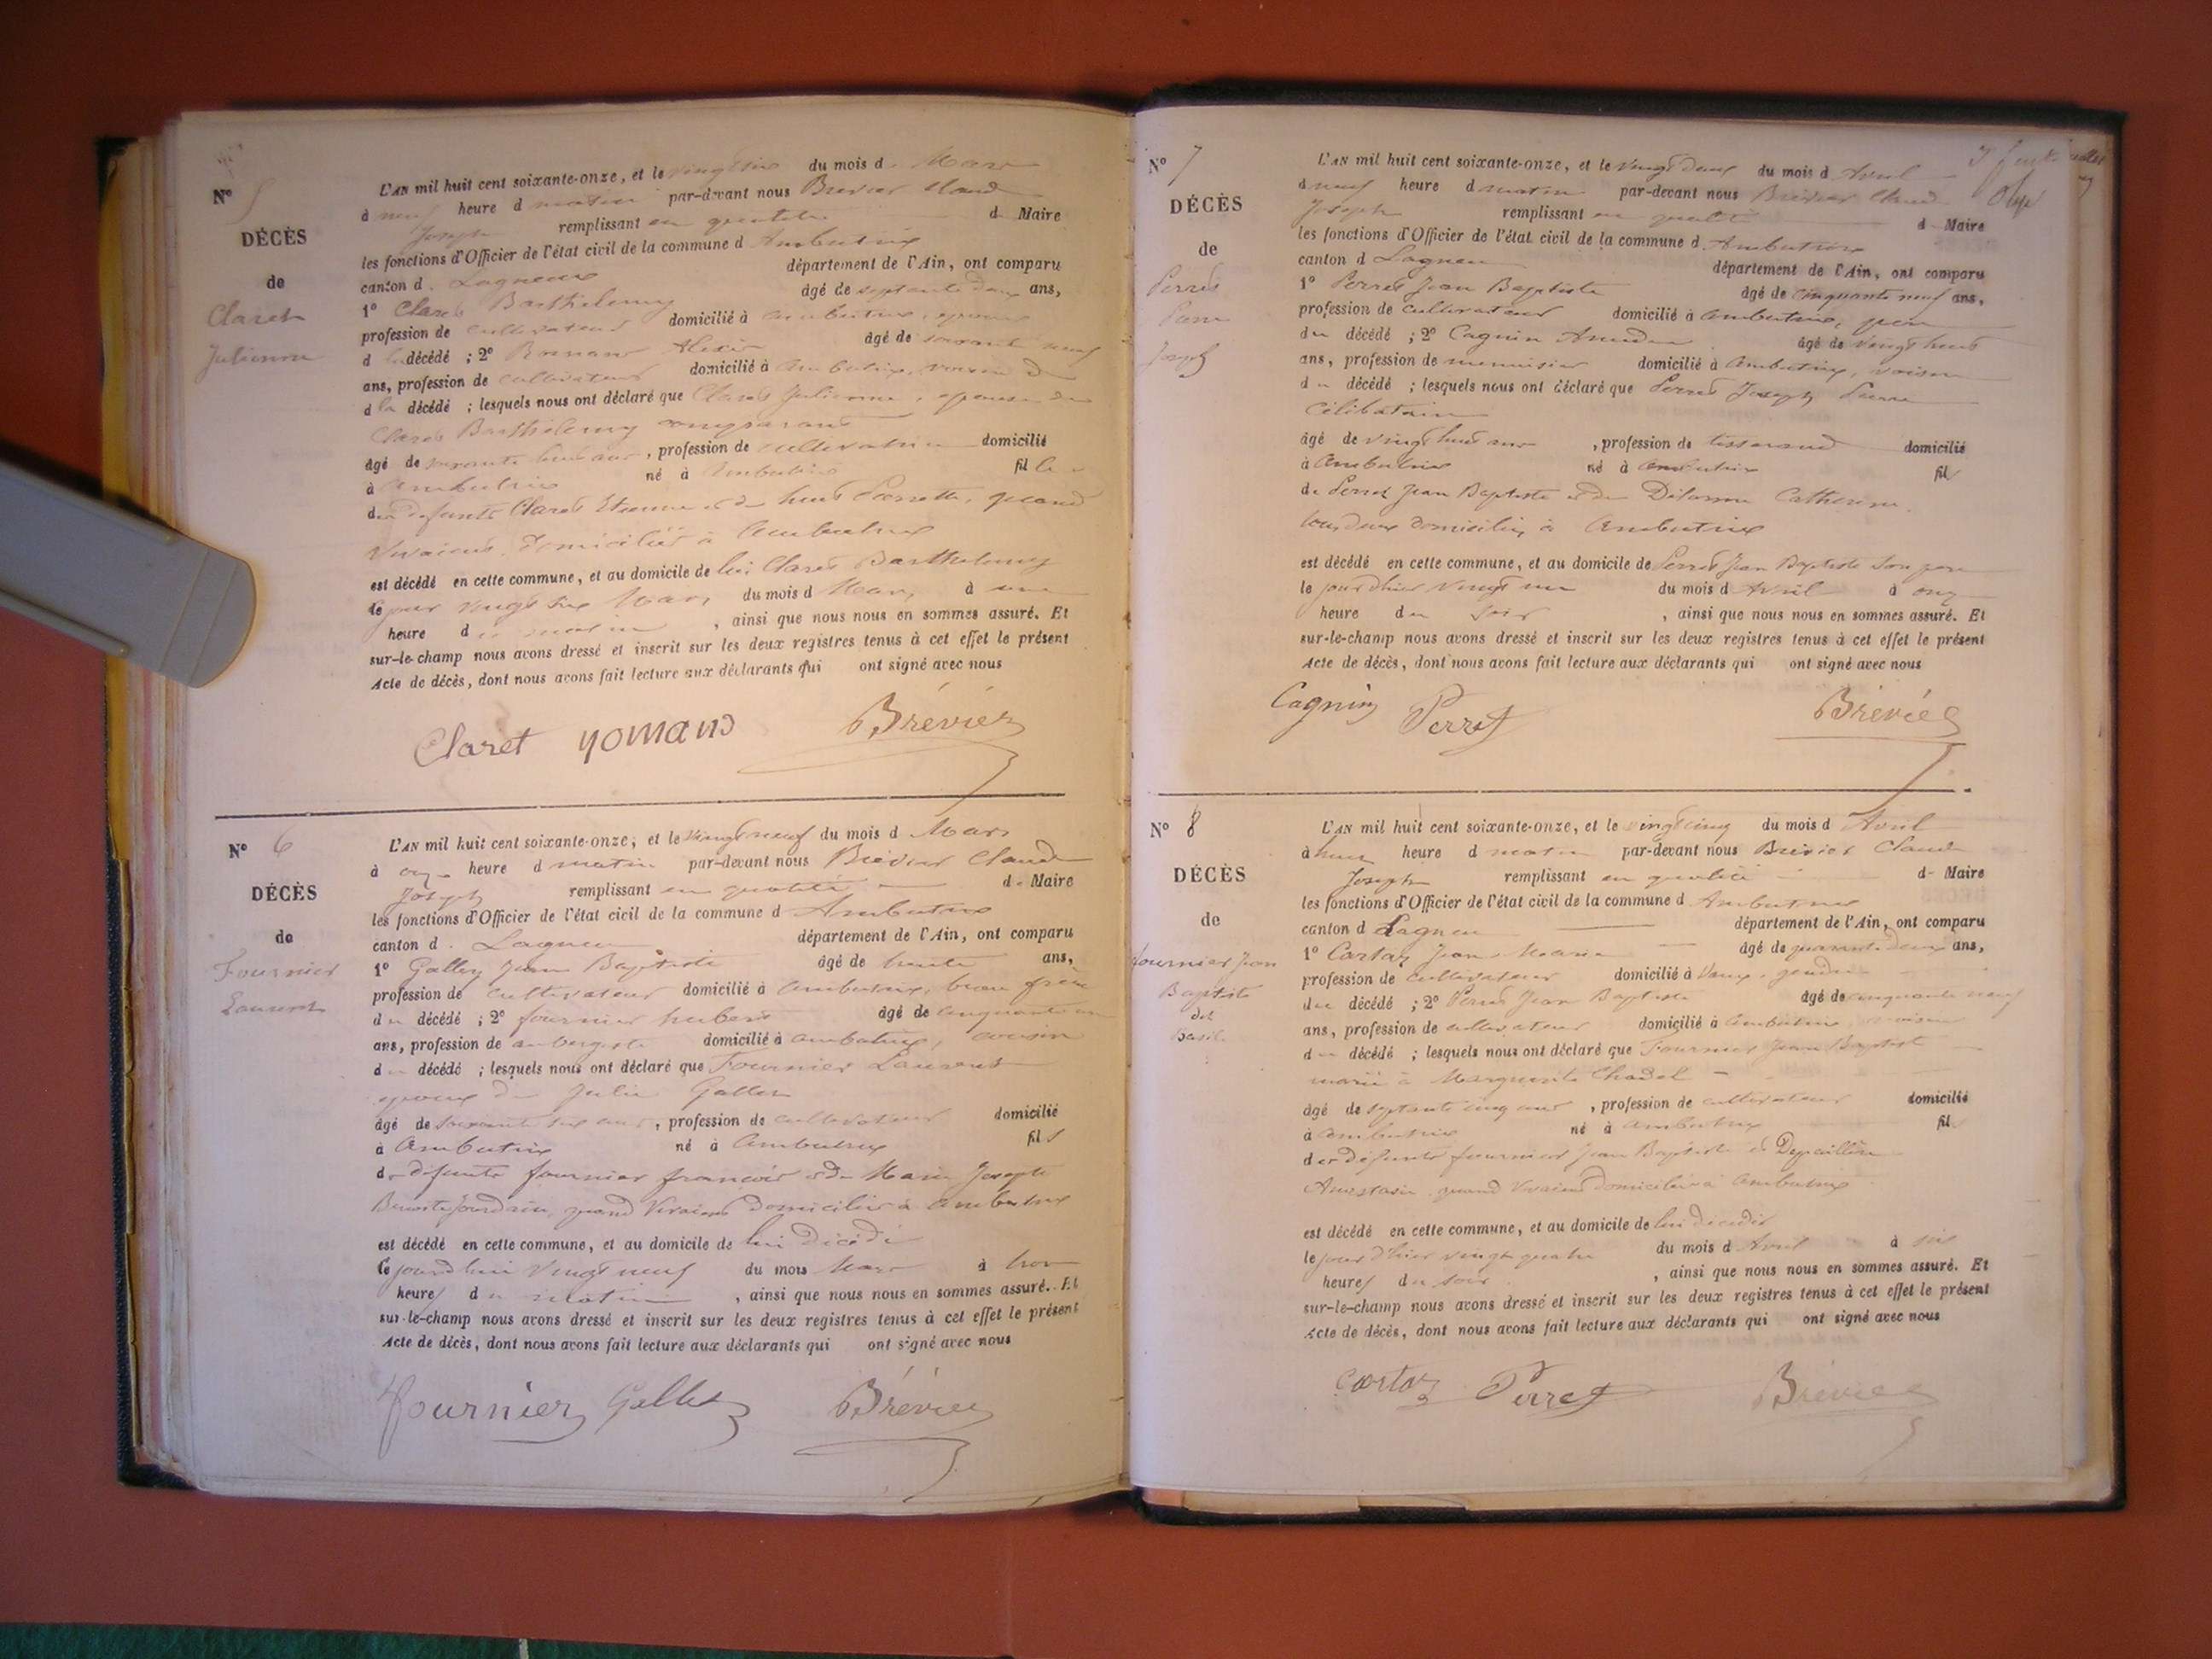 N° 5
DÉCÈS
de
Claret
Julienne
L'AN mil huit cent soixante-onze, et le vingt six du mois d Mars
à neuf heure d matin par-devant nous Brévier Claude
Joseph remplissant en qualité de Maire
les fonctions d'Officier de l'état civil de la commune d Ambutrix
canton d. Lagnieu département de l'Ain, ont comparu
1° Claret Barthelemy âgé de septante deux ans,
profession de cultivateur domicilié à ambutrix, epoux
d la décédé ; 2° Alexis âgé de soixante neuf
ans, profession de cultivateur domicilié à Ambutrix, voisin
d la décédé ; lesquels nous ont déclaré que Claret Julienne, epouse de
Claret Barthelemy comparant
âgé de soixante huit ans, profession de cultivatrice domicilié
à Ambutrix né à Ambutrix fil le
des defunts Claret Etienne et de Pierrette, quand
vivaient domiciliés à Ambutrix
est décédé en cette commune, et au domicile de lui Claret Barthelemy
le jour vingt six Mars du mois d Mars à une
heure d u matin , ainsi que nous nous en sommes assuré. Et
sur-le-champ nous avons dressé et inscrit sur les deux registres tenus à cet effet le présent
Acte de décès, dont nous avons fait lecture aux déclarants qui ont signé avec nous
Claret Brévier
N° 6
DÉCÈS
de
Fournier
Laurent
L'AN mil huit cent soixante-onze, et le vingt neuf du mois d Mars
à onze heure d matin par-devant nous Brévier Claude
Joseph remplissant en qualité de Maire
les fonctions d'Officier de l'état civil de la commune d Ambutrix
canton d. Lagnieu département de l'Ain, ont comparu
1° Gallez Jean Baptiste âgé de trente ans,
profession de cultivateur domicilié à ambutrix, beau frère
du décédé ; 2° fournier hubert âgé de cinquante un
ans, profession de aubergiste domicilié à ambutrix, cousin
du décédé ; lesquels nous ont déclaré que Fournier Laurent
epoux de Julie Gallez
âgé de soixante six ans, profession de cultivateur domicilié
à Ambutrix né à Ambutrix fil s
de defunts fournier françois et de Marie Josepte
Benoite Jourdain, quand vivaient domiciliés à ambutrix
est décédé en cette commune, et au domicile de lui Décédé
le jourdhui vingt neuf du mois Mars à trois
heures du matin , ainsi que nous nous en sommes assuré. Et
sur-le-champ nous avons dressé et inscrit sur les deux registres tenus à cet effet le présent
Acte de décès, dont nous avons fait lecture aux déclarants qui ont signé avec nous
Fournier Gallez Brévier
N° 7
DÉCÈS
de
Perret
Pierre
Joseph
L'AN mil huit cent soixante-onze, et le vingt deux du mois d Avril
à neuf heure d matin par-devant nous Brévier Claude
Joseph remplissant en qualité de Maire
les fonctions d'Officier de l'état civil de la commune d Ambutrix
canton d Lagnieu département de l'Ain, ont comparu
1° Perret Jean Baptiste âgé de cinquante neuf ans,
profession de cultivateur domicilié à ambutrix, père
du décédé ; 2° Cagnin âgé de vingt huit
ans, profession de menuisier domicilié à ambutrix, voisin
du décédé ; lesquels nous ont déclaré que Perret Joseph Pierre
Célibataire
âgé de vingt huit ans , profession de tisserand domicilié
à Ambutrix né à Ambutrix fils
de Perret Jean Baptiste et de Delorme Catherine
tous deux domiciliés à Ambutrix
est décédé en cette commune, et au domicile de Perret Jean Baptiste son père
le jour dhier vingt un du mois d Avril à onze
heure du soir , ainsi que nous nous en sommes assuré. Et
sur-le-champ nous avons dressé et inscrit sur les deux registres tenus à cet effet le présent
Acte de décès, dont nous avons fait lecture aux déclarants qui ont signé avec nous
Cagnin Perret Brévier
N° 8
DÉCÈS
de
fournier Jean
Baptiste
dit
Basile
L'AN mil huit cent soixante-onze, et le vingt cinq du mois d Avril
à huit heure d matin par-devant nous Brévier Claude
Joseph remplissant en qualité de Maire
les fonctions d'Officier de l'état civil de la commune d Ambutrix
canton d Lagnieu département de l'Ain, ont comparu
1° Cortaz Jean Marie âgé de quarante deux ans,
profession de cultivateur domicilié à Vaux, gendre
du décédé ; 2° Perret Jean Baptiste âgé de cinquante neuf
ans, profession de cultivateur domicilié à ambutrix, voisin
du décédé ; lesquels nous ont déclaré que Fournier Jean Baptiste
marié à Marguerite Chadel
âgé de septante cinq ans , profession de cultivateur domicilié
à Ambutrix né à Ambutrix fils
des défunts fournier Jean Baptiste et
Anastasie quand vivaient domiciliés à Ambutrix
est décédé en cette commune, et au domicile de lui décédé
le jour dhier vingt quatre du mois d Avril à six
heures du soir , ainsi que nous nous en sommes assuré. Et
sur-le-champ nous avons dressé et inscrit sur les deux registres tenus à cet effet le présent
Acte de décès, dont nous avons fait lecture aux déclarants qui ont signé avec nous
Cortaz Perret Brévier